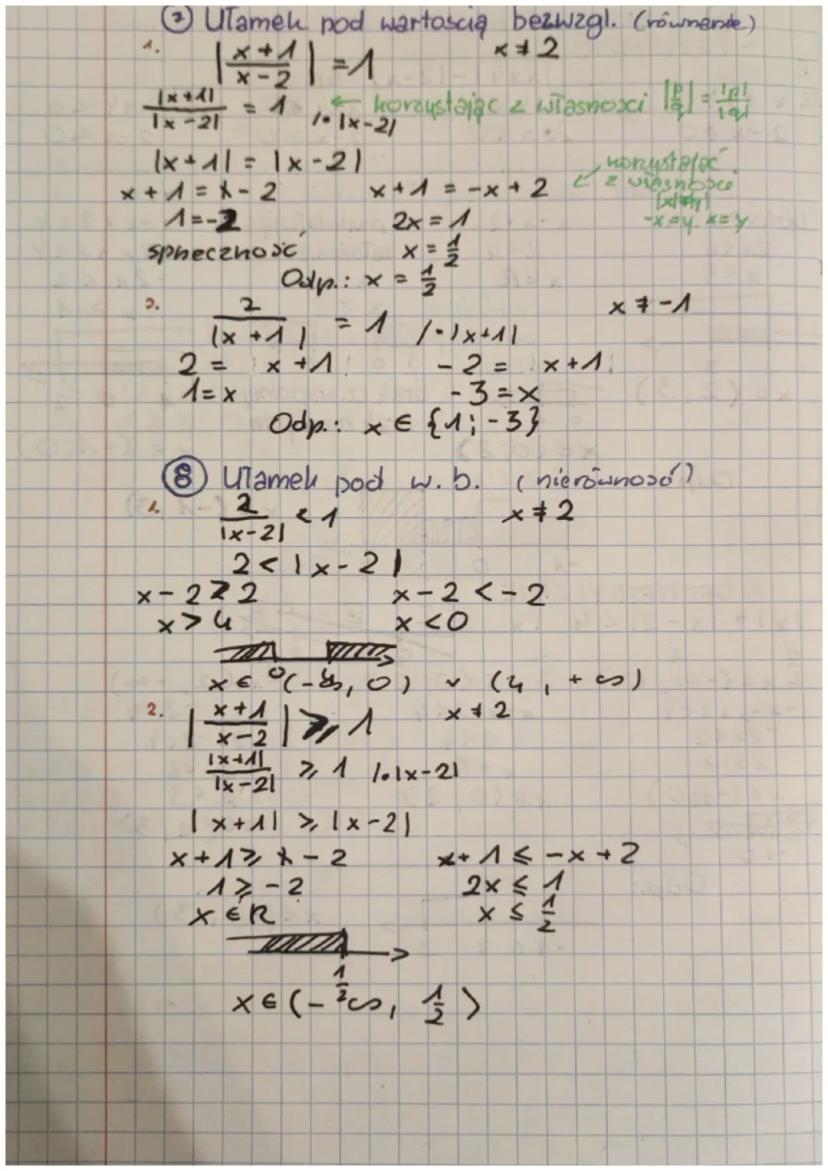 ⑦ Ułamek pod wartością bezwzgl. (równanie)
1. |x+1/x-2| = 1 x ≠ 2
|x+1|/|x-2| = 1 /·|x-2| ← korzystając z własności |p/q| = |p|/|q|
|x+1| = |x-2|
x+1 = x-2 x+1 = -x+2 ↙ korzystając z własności |x|=|y| -x=y x=y
1=-2 2x = 1
sprzeczność x = 1/2
Odp.: x = 1/2
2. 2/|x+1| = 1 /·|x+1| x ≠ -1
2 = x+1 -2 = x+1
1=x -3=x
Odp.: x ∈ {1; -3}
⑧ Ułamek pod w. b. (nierówność)
1. 2/|x-2| < 1 x ≠ 2
2 < |x-2|
x-2 > 2 x-2 < -2
x > 4 x < 0
0 4
x ∈ (-∞, 0) ∨ (4, +∞)
2. |x+1/x-2| ≥ 1 x ≠ 2
|x+1|/|x-2| ≥ 1 /·|x-2|
|x+1| ≥ |x-2|
x+1 ≥ x-2 x+1 ≤ -x+2
1 ≥ -2 2x ≤ 1
x ∈ R x ≤ 1/2
1/2
x ∈ (-∞, 1/2 ⟩